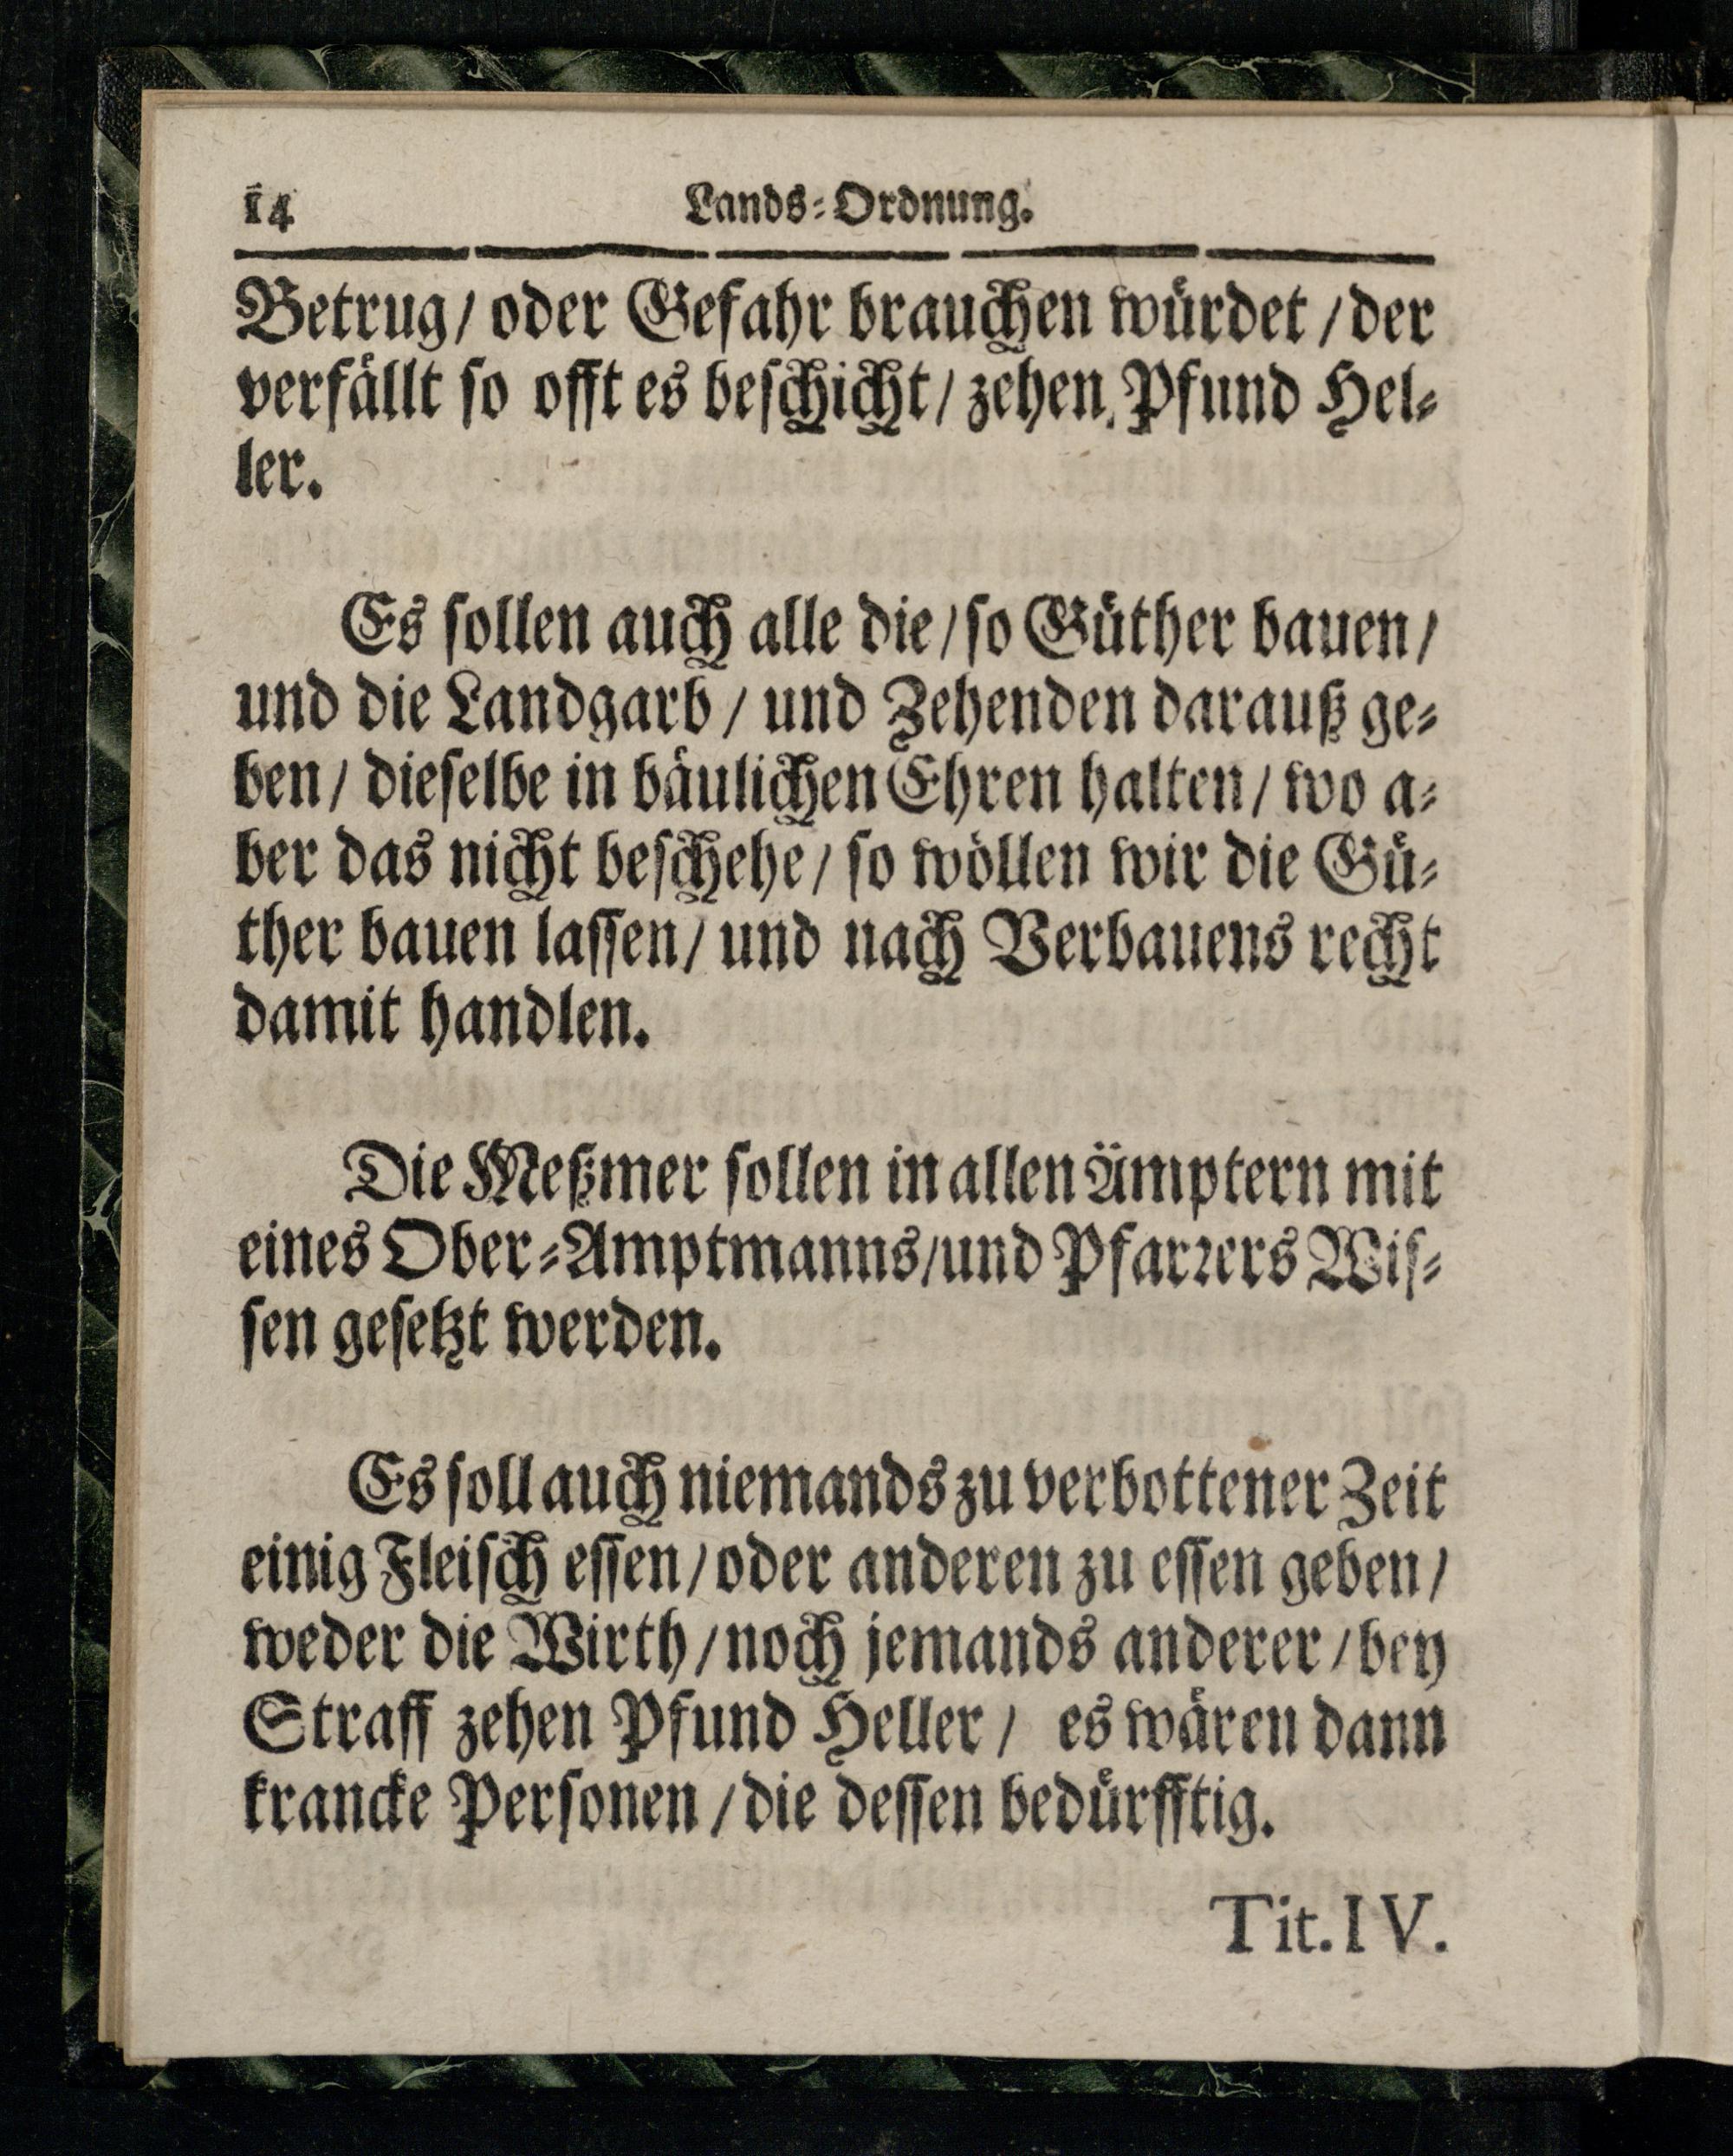 14 Lands-Ordnung.
Betrug/ oder Gefahr brauchen würdet / der
verfällt so offt es beschicht/ zehen Pfund Hel-
ler.
Es sollen auch alle die/ so Güther bauen/
und die Landgarb / und Zehenden darauß ge-
ben/ dieselbe in bäulichen Ehren halten/ wo a-
ber das nicht beschehe/ so wöllen wir die Gü-
ther bauen lassen/ und nach Verbauens recht
damit handlen.
Die Meßmer sollen in allen Ämptern mit
eines Ober-Amptmanns/und Pfarrers Wis-
sen gesetzt werden.
Es soll auch niemands zu verbottener Zeit
einig Fleisch essen/ oder anderen zu essen geben/
weder die Wirth/ noch jemands anderer/ bey
Straff zehen Pfund Heller/ es wären dann
krancke Personen / die dessen bedürfftig.
Tit. IV.